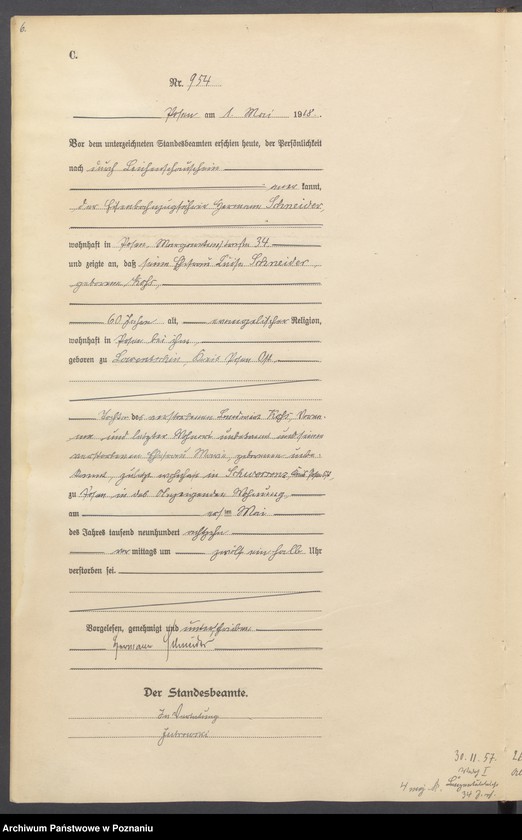 6.
C.
Nr. 954
Posen am 1. Mai 1918.
Vor dem unterzeichneten Standesbeamten erschien heute, der Persönlichkeit
nach durch Leichenschauschein
aner kannt,
der Eisenbahnzugführer Hermann Schneider,
wohnhaft in Posen, Margaretenstraße 34
und zeigte an, daß seine Ehefrau Luise Schneider,
geborene Kohs,
60 Jahre alt, evangelischer Religion,
wohnhaft in Posen bei ihm,
geboren zu Kreis Posen Ost
Tochter des verstorbenen Kohs,
und letzter Wohnort unbekannt und seiner
verstorbenen Ehefrau Marie, geborenen unbe-
kannt, zuletzt wohnhaft in
zu Posen in des Anzeigenden Wohnung,
am ersten Mai
des Jahres tausend neunhundert achtzehn
vor mittags um zwölf ein halb Uhr
verstorben sei.
Vorgelesen, genehmigt und unterschrieben
Hermann Schneider
Der Standesbeamte.
In Vertretung
30. 11. 57.
Archiwum Państwowe w Poznaniu